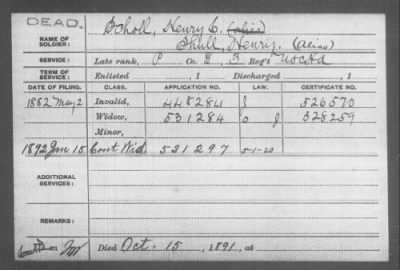 DEAD.
NAME OF SOLDIER: Scholl, Henry C. (alias)
Skull, Henry. (Alias)
SERVICE: Late rank, P Co. E, 3 Reg't
TERM OF SERVICE: Enlisted , 1 Discharged , 1
DATE OF FILING. CLASS. APPLICATION NO. LAW. CERTIFICATE NO.
1882 May 2 Invalid, 448284 526570
Widow, 531284 328259
Minor,
1892 Jan 15 Cont Wid. 531297 5-1-20
ADDITIONAL SERVICES:
REMARKS:
Died Oct. 15, 1891, at